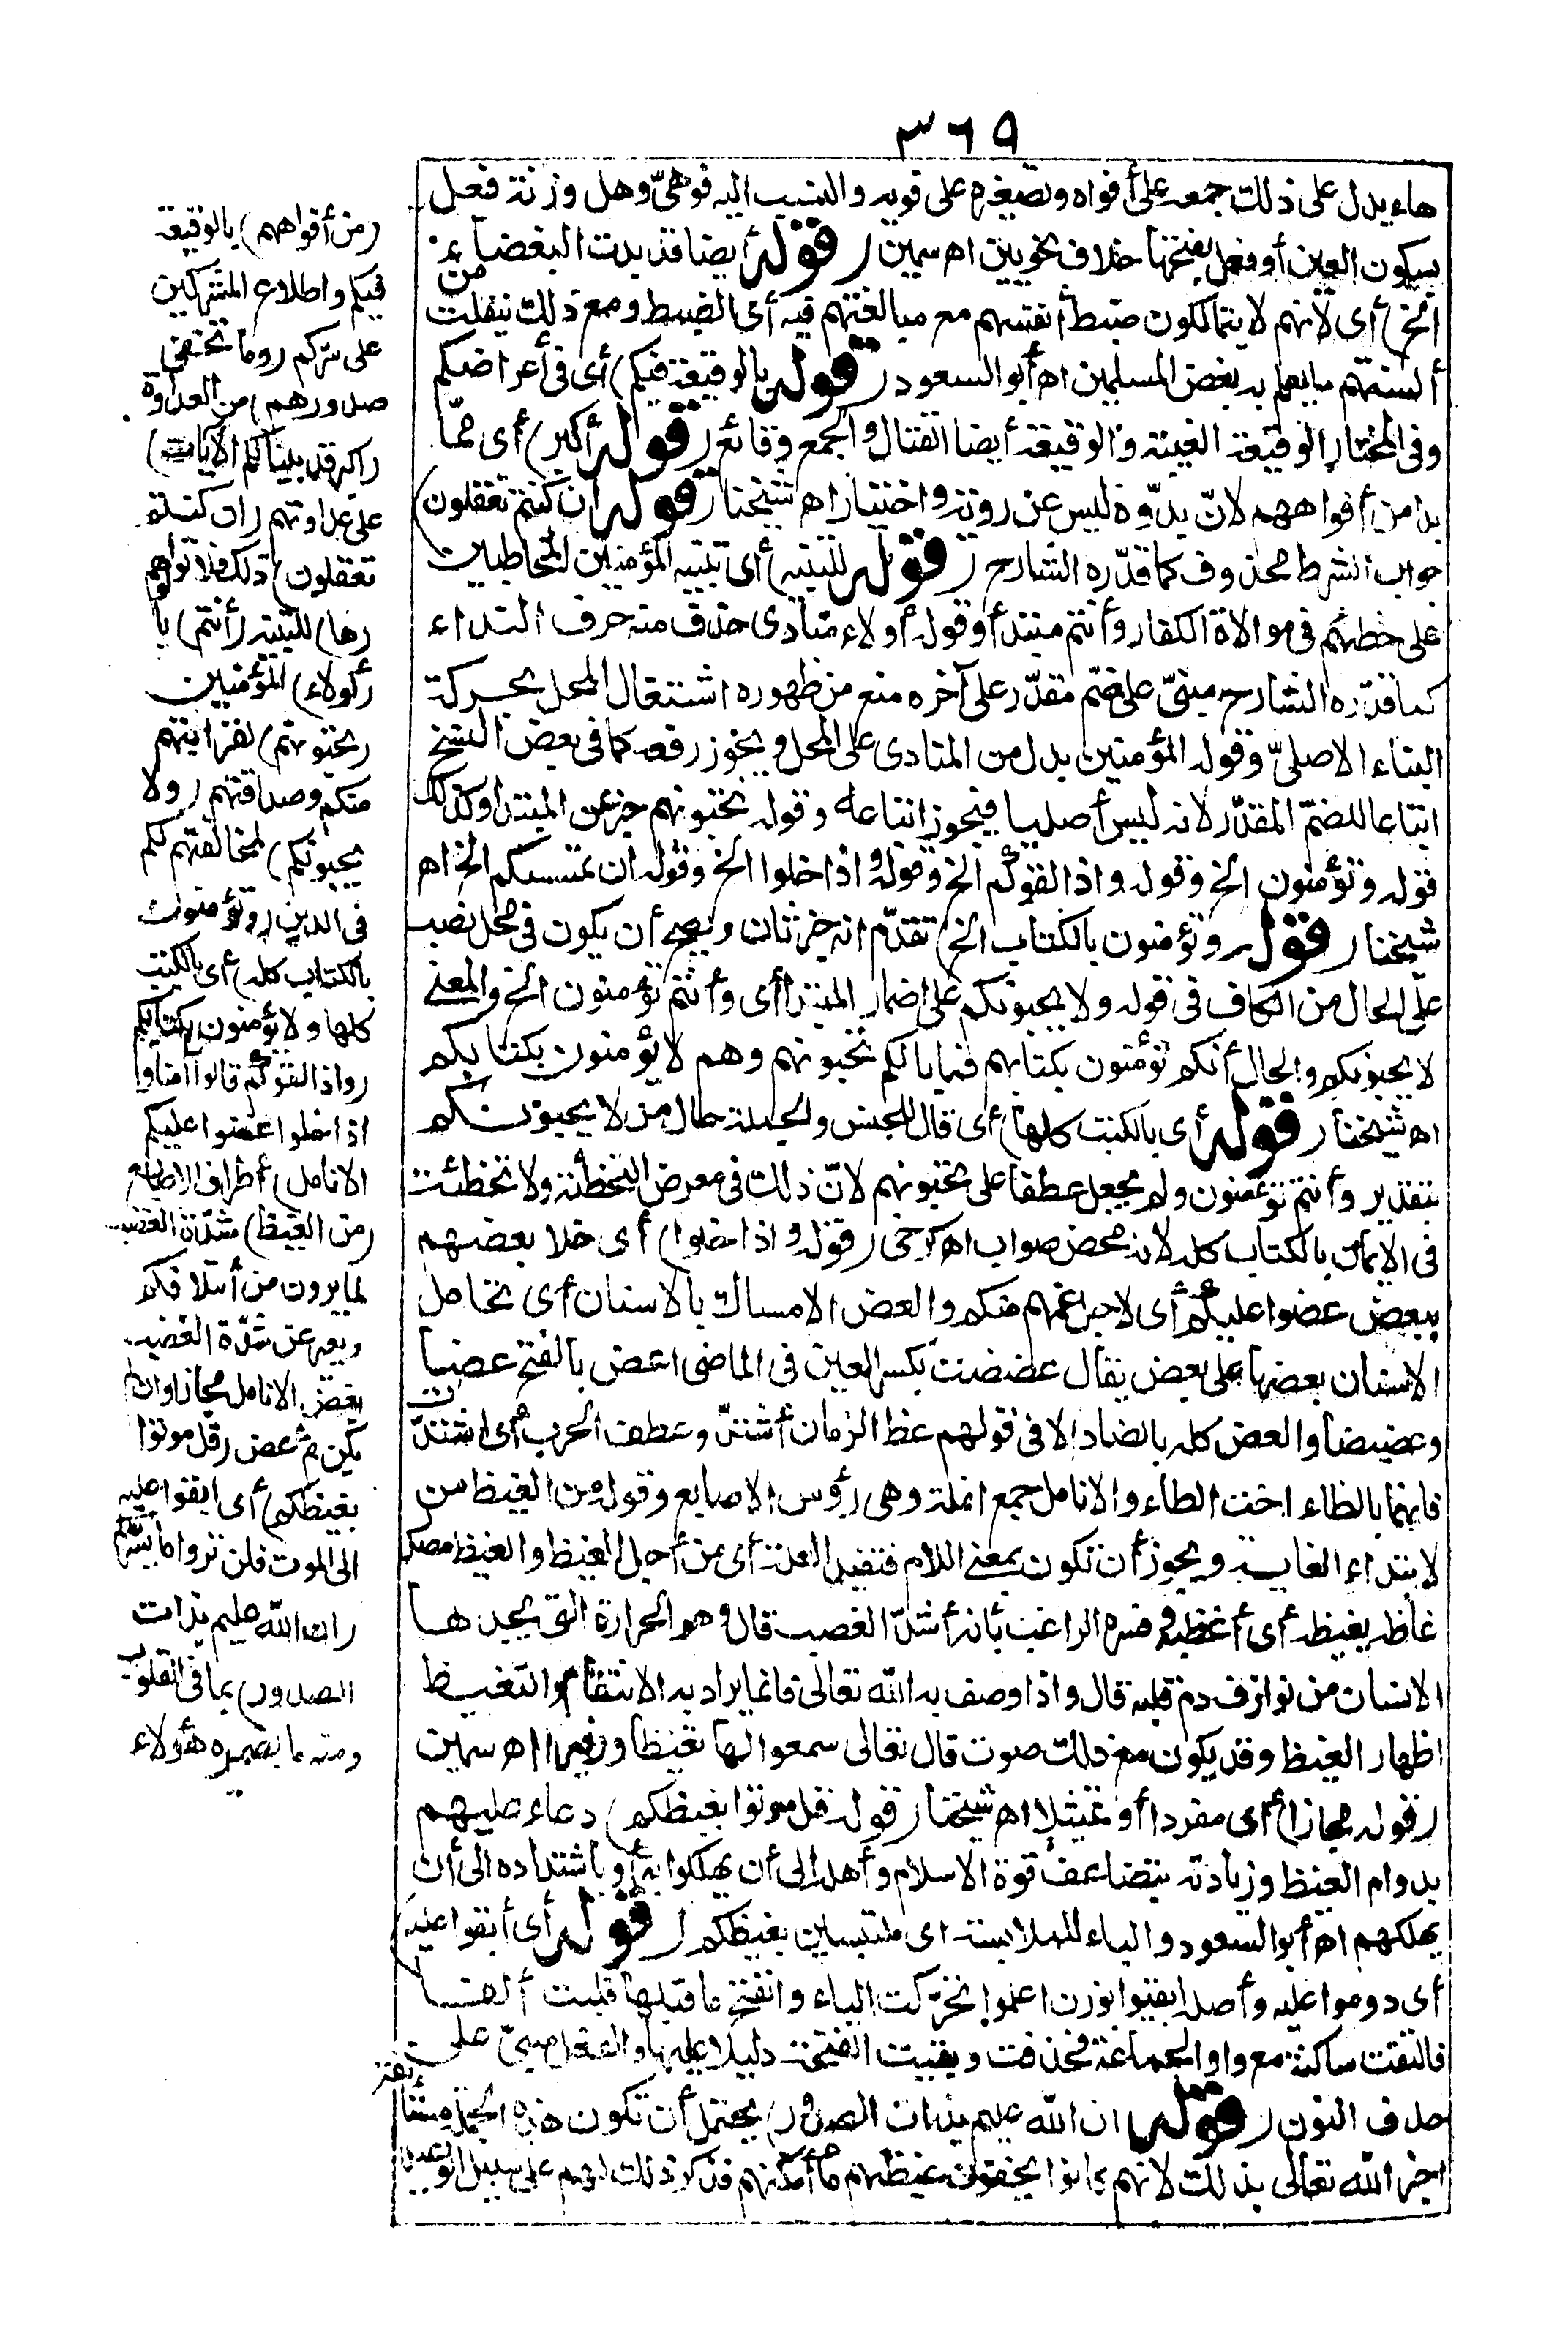 ٣٦٩
هاء يدل على ذلك جمعه على أفواه وتصغيره على فويه والنسب اليه فوهىّ وهل وزنه فعل
بسكون العين أو فعل بفتحها خلاف نحويين اه سمين (قوله أيضا قد بدت البغضاء من
الخ) أى لانهم لا يتمالكون ضبط أنفسهم مع مبالغتهم فيه أى الضبط ومع ذلك ينفلت
ألسنتهم ما يعلم به بغض المسلمين اه أبو السعود (قوله بالوقيعة فيكم) أى فى أعراضكم
وفى المختار الوقيعة الغيبة والوقيعة أيضا القتال والجمع وقائع (قوله أكبر) أى مما
بدا من أفواههم لانّ بدوّه ليس عن روية واختيار اه شيخنا (قوله ان كنتم تعقلون)
جواب الشرط محذوف كما قدّره الشارح (قوله للتنبيه) أى تنبيه المؤمنين المخاطبين
على خطئهم فى موالاة الكفار وأنتم مبتدأ وقوله أولاء منادى حذف منه حرف النداء
كما قدّره الشارح مبنىّ على ضمّ مقدّر على آخره منع من ظهوره اشتغال المحل بحركة
البناء الاصلىّ وقوله المؤمنين بدل من المنادى على المحل ويجوز رفعه كما فى بعض النسخ
اتباعا للضمّ المقدّر لانه ليس أصليا فيجوز اتباعه وقوله تحبونهم خبر عن المبتدا وكذلك
قوله وتؤمنون الخ وقوله واذا لقوكم الخ وقوله واذا خلوا الخ وقوله ان تمسسكم الخ اه
شيخنا (قوله وتؤمنون بالكتاب الخ) تقدّم انه خبر ثان ويصح أن يكون فى محل نصب
على الحال من الكاف فى قوله ولا يحبونكم على اضمار المبتدا أى وأنتم تؤمنون الخ والمعنى
لا يحبونكم والحال أنكم تؤمنون بكتابهم فما بالكم تحبونهم وهم لا يؤمنون بكتابكم
اه شيخنا (قوله أى بالكتب كلها) أى فال للجنس والجملة حال من لا يحبونكم
بتقدير وأنتم تؤمنون ولم يجعل عطفا على تحبونهم لانّ ذلك فى معرض التخطئة ولا تخطئة
فى الايمان بالكتاب كله لانه محض صواب اه كرخى (قوله واذا خلوا) أى خلا بعضهم
ببعض عضوا عليكم أى لاجل غمهم منكم والعض الامساك بالاسنان أى تحامل
الاسنان بعضها على بعض يقال عضضت بكسر العين فى الماضى اعض بالفتح عضا
وعضيضا والعض كله بالضاد الا فى قولهم عظ الزمان أشتدّ وعظت الحرب أى اشتدّت
فانهما بالظاء اخت الطاء والانامل جمع انملة وهى رؤس الاصابع وقوله من الغيظ من
لابتداء الغاية ويجوز أن تكون بمعنى اللام فتفيد العلة أى من أجل الغيظ والغيظ مصدر
غاظه يغيظه أى أغضبه وفسره الراغب بأنه أشدّ الغضب قال وهو الحرارة التى يجدها
الانسان من ثوران دم قلبه قال واذا وصف به الله تعالى فانما يراد به الانتقام والتغيظ
اظهار الغيظ وقد يكون مع ذلك صوت قال تعالى سمعوا لها تغيظا وزفيرا اه سمين
(قوله مجازا) أى مفردا أو تمثيلا اه شيخنا (قوله قل موتوا بغيظكم) دعاء عليهم
بدوام الغيظ وزيادته بتضاعف قوة الاسلام وأهله الى أن يهلكوا به أو باشتداده الى أن
يهلكهم اه أبو السعود والباء للملابسة اى ملتبسين بغيظكم (قوله أى أبقوا عليه)
أى دوموا عليه وأصله ابقيوا بوزن اعلموا تحرّكت الياء وانفتح ما قبلها قلبت ألفا
فالتقت ساكنة مع واو الجماعة فحذفت وبقيت الفتحة دليلا عليها والفعل مبنىّ على
حذف النون (قوله ان الله عليم بذات الصدور) يحتمل أن تكون هذه الجملة مستأنفة
اخبر الله تعالى بذلك لانهم كانوا يخفون غيظهم ما أمكنهم فذكر ذلك لهم على سبيل الوعيد
(من أفواههم) بالوقيعة
فيكم واطلاع المشركين
على سرّكم (وما تخفى
صدورهم) من العداوة
(اكبر قد بينا لكم الآيات)
على عداوتهم (ان كنتم
تعقلون) ذلك فلا توالوهم
(ها) للتنبيه (أنتم) يا
(أولاء) المؤمنين
(تحبونهم) لقرابتهم
منكم وصداقتهم (ولا
يحبونكم) لمخالفتهم لكم
فى الدين (وتؤمنون
بالكتاب كله) أى بالكتب
كلها ولا يؤمنون بكتابكم
(واذا لقوكم قالوا آمنا وا
اذا خلوا عضوا عليكم
الانامل) أطراف الاصابع
(من الغيظ) شدّة الغضب
لما يرون من أئتلافكم
ويعبر عن شدّة الغضب
بعض الانامل مجازا وان لم
يكن ثم عض (قل موتوا
بغيظكم) أى ابقوا عليه
الى الموت فلن تروا ما يسرّكم
(ان الله عليم بذات
الصدور) بما فى القلوب
ومنه ما يضمره هؤلاء